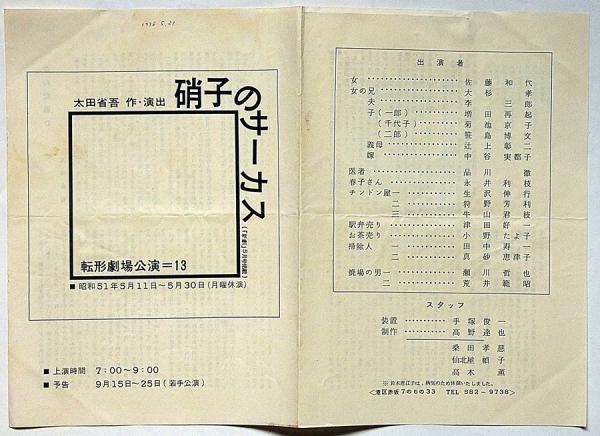 1976 5.21
太田省吾 作・演出 硝子のサーカス
(「新劇」5月号掲載)
転形劇場公演=13
■昭和51年5月11日〜5月30日(月曜休演)
■上演時間 7:00〜9:00
■予告 9月15日〜25日(若手公演)
出演者
女 佐藤和代
女の兄 大杉孝
夫 李三郎
子(一郎) 増田再起
(千代子) 菊池京子
(二郎) 笹島博文
義母 辻上彰二
嫁 中谷実都子
医者 品川徹
春子さん 永井利枝
チンドン屋一 生沢伸行
二 狩野芳利
三 牛山君枝
駅弁売り 津田好一
お茶売り 小野たよ子
掃除人 一 田中寿一
二 真砂恵津子
焼場の男一 瀬川哲也
二 荒井範昭
スタッフ
装置 手塚俊一
制作 高野達也
桑田孝慈
仙北屋頓子
高木薫
※鈴木理江子は、病気のため休演いたしました。
<港区赤坂7の6の33 TEL 582-9738>